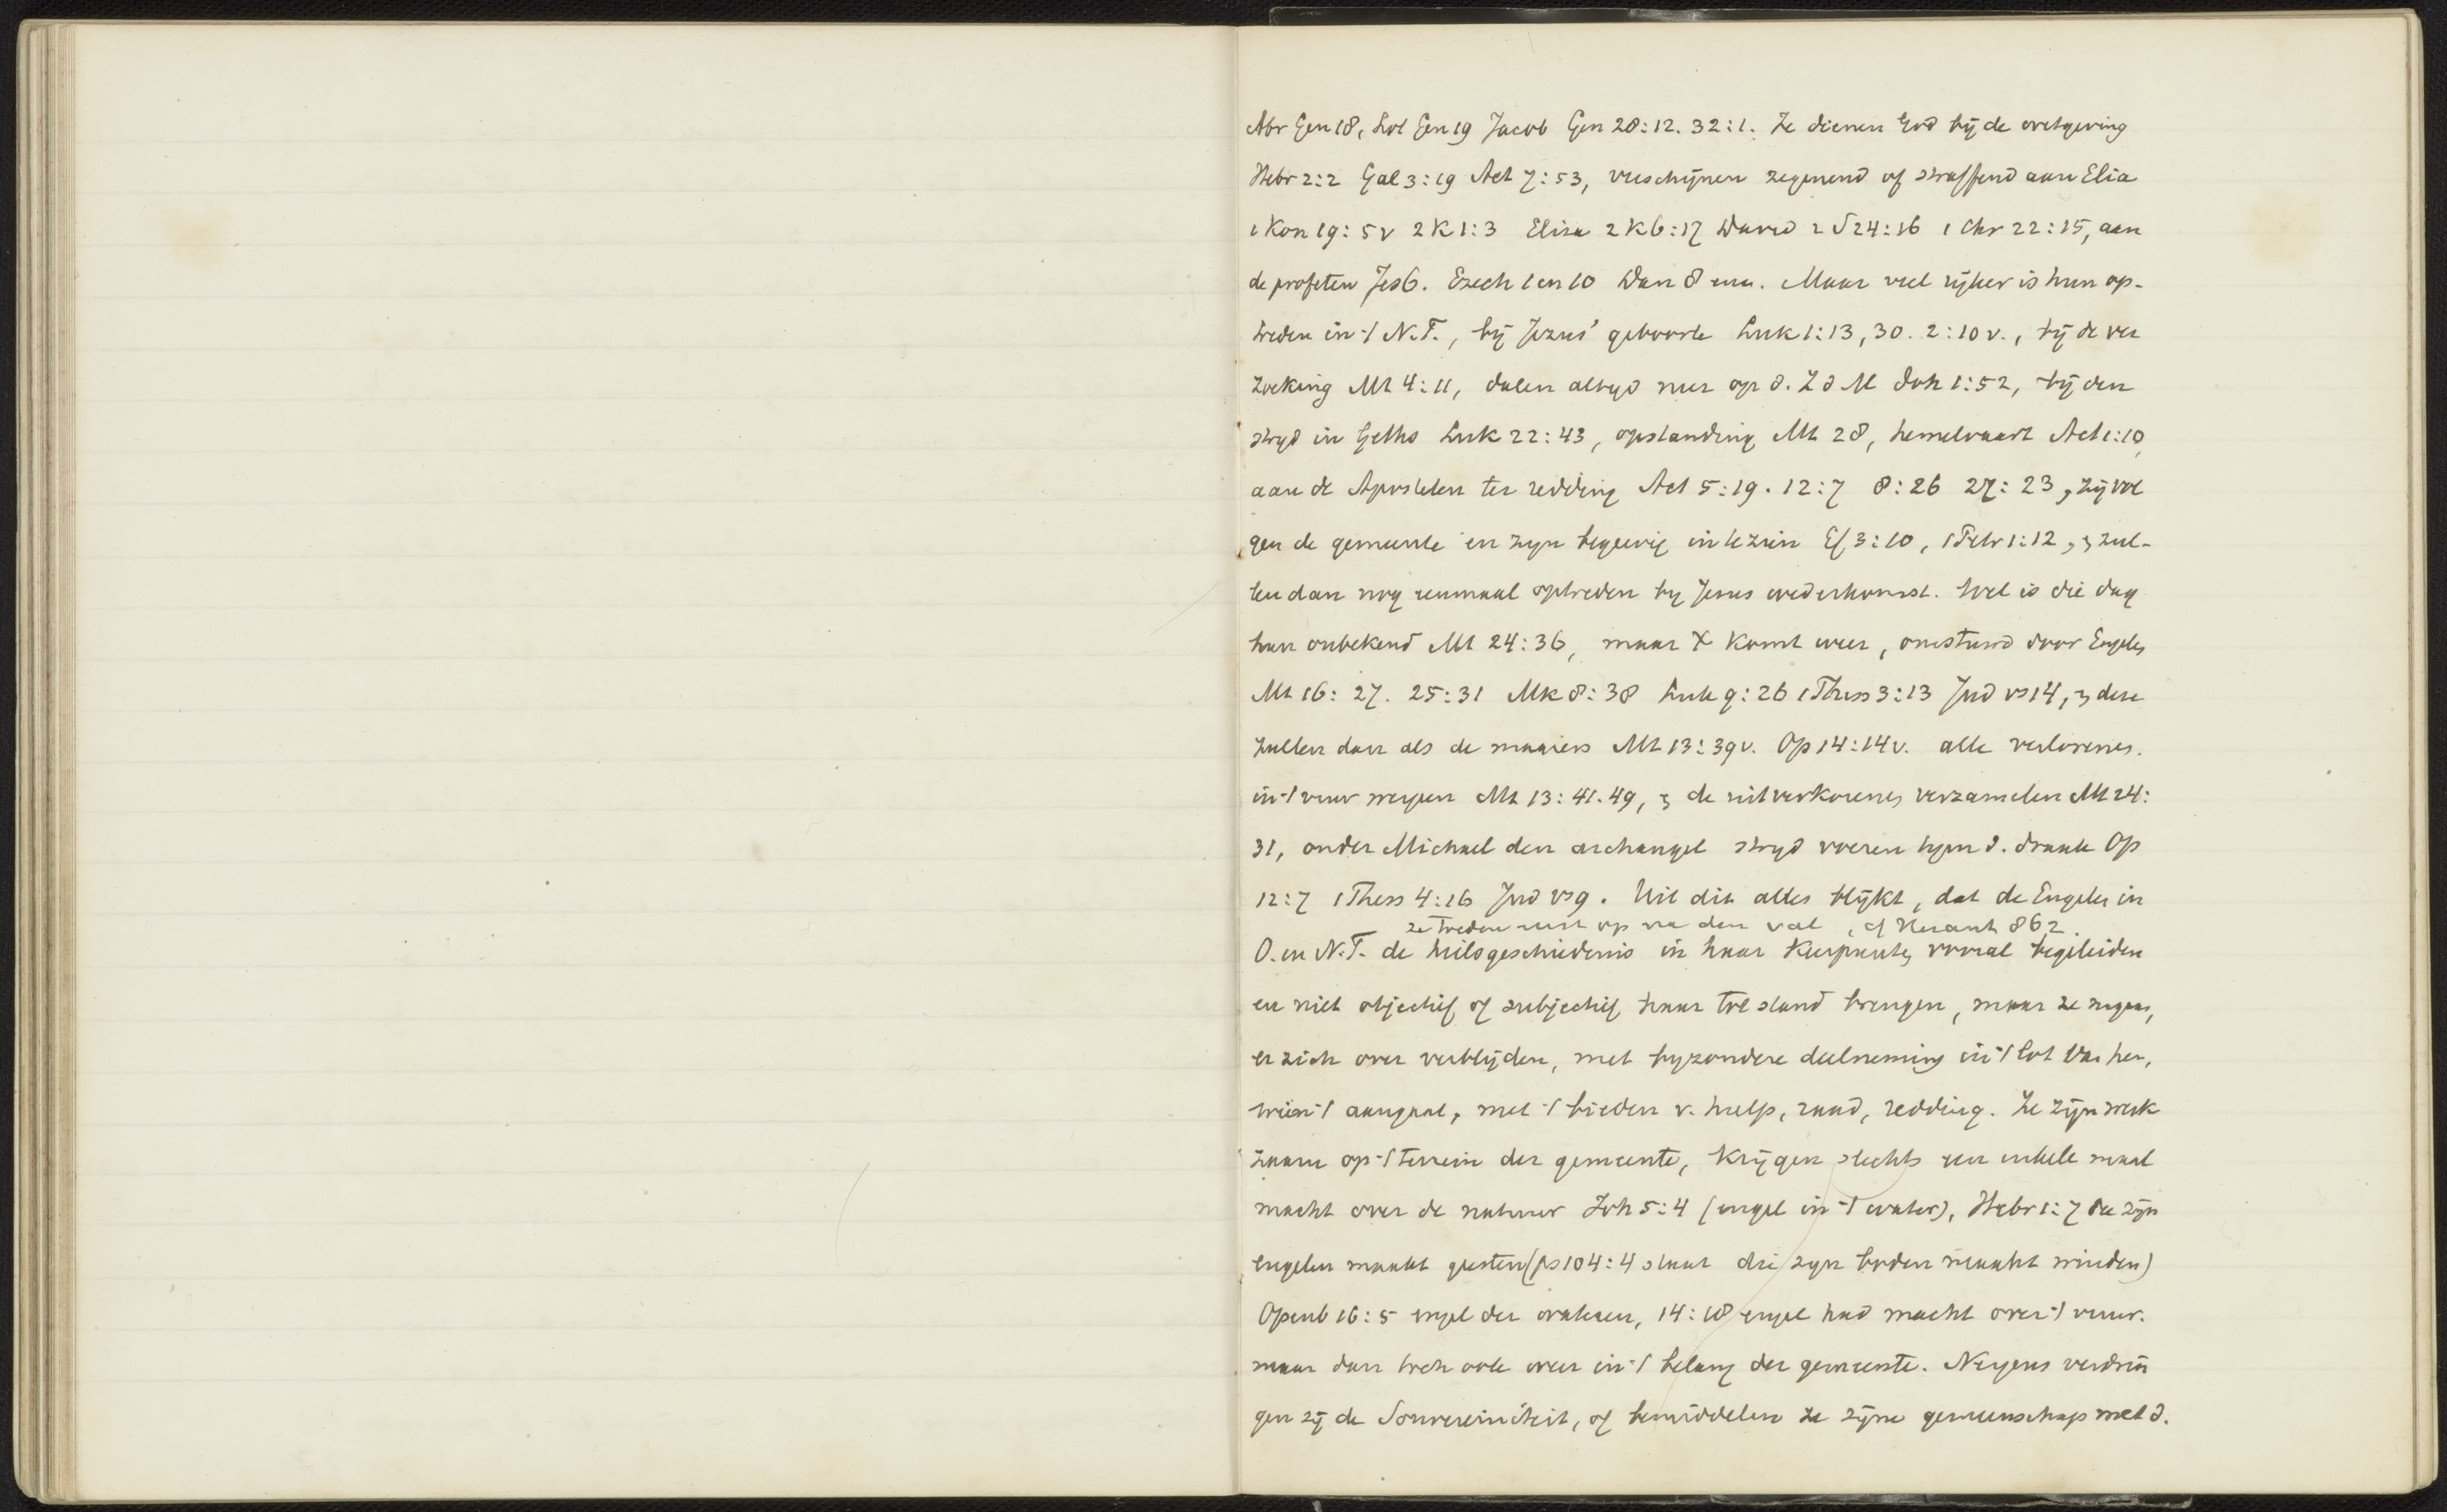 Abr Gen 18, Lot Gen 19 Jacob Gen 28:12. 32:1. Ze dienen God bij de wetgeving
Hebr 2:2 Gal 3:19 Act 7:53, verschijnen zegenend of straffend aan Elia
1 Kon 19:5v 2 K 1:3 Elisa 2 K 6:17 David 2 S 24:16 1 Chr 22:15, aan
de profeten Jes 6. Ezech 1 en 10 Dan 8 enz. Maar veel rijker is hun op-
treden in 't N.T., bij Jezus' geboorte Luk 1:13, 30. 2:10v., bij de ver
zoeking Mt 4:11, dalen altijd neer op d. Z d M Joh 1:52, bij den
strijd in Geths Luk 22:43, opstanding Mt 28, hemelvaart Act 1:10,
aan de Apostelen ter redding Act 5:19. 12:7 8:26 27:23, zij vol
gen de gemeente en zijn begeerig in te zien Ef 3:10, 1 Petr 1:12, & zul-
len dan nog eenmaal optreden bij Jezus wederkomst. Wel is die dag
hun onbekend Mt 24:36, maar X komt weer, omstuwd door Engelen
Mt 16:27. 25:31 Mk 8:38 Luk 9:26 1 Thess 3:13 Jud vs 14, & deze
zullen dan als de maaiers Mt 13:39v. Op 14:14v. alle verlorenen
in 't vuur werpen Mt 13:41.49, & de uitverkorenen verzamelen Mt 24:
31, onder Michael den archangel strijd voeren tegen d. draak Op
12:7 1 Thess 4:16 Jud vs 9. Uit dit alles blijkt, dat de Engelen in
ze treden eerst op na den val, cf 862.
O. en N.T. de heilsgeschiedenis in haar keerpunten vooral begeleiden
en niet objectief of subjectief haar tot stand brengen, maar ze
er zich over verblijden, met bijzondere deelneming in 't lot van hen,
wien 't aangaat, met 't bieden v. hulp, raad, redding. Ze zijn werk
zaam op 't terrein der gemeente, krijgen slechts een enkele maal
macht over de natuur Joh 5:4 (engel in 't water), Hebr 1:7 die zijn
engelen maakt geesten (ps 104:4 staat die zijn boden maakt winden)
Openb 16:5 engel der wateren, 14:18 engel had macht over 't vuur.
maar dan toch ook weer in 't belang der gemeente. Nergens verdrin
gen zij de Souvereiniteit, of bemiddelen ze zijne gemeenschap met d.